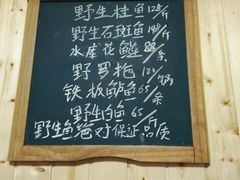 野生桂鱼128/斤
野生石斑鱼168/斤
水库花鲢88/条
野罗拖12/锅
铁板鲈鱼65/条
野生白鱼65/斤
野生鱼绝对保证品质